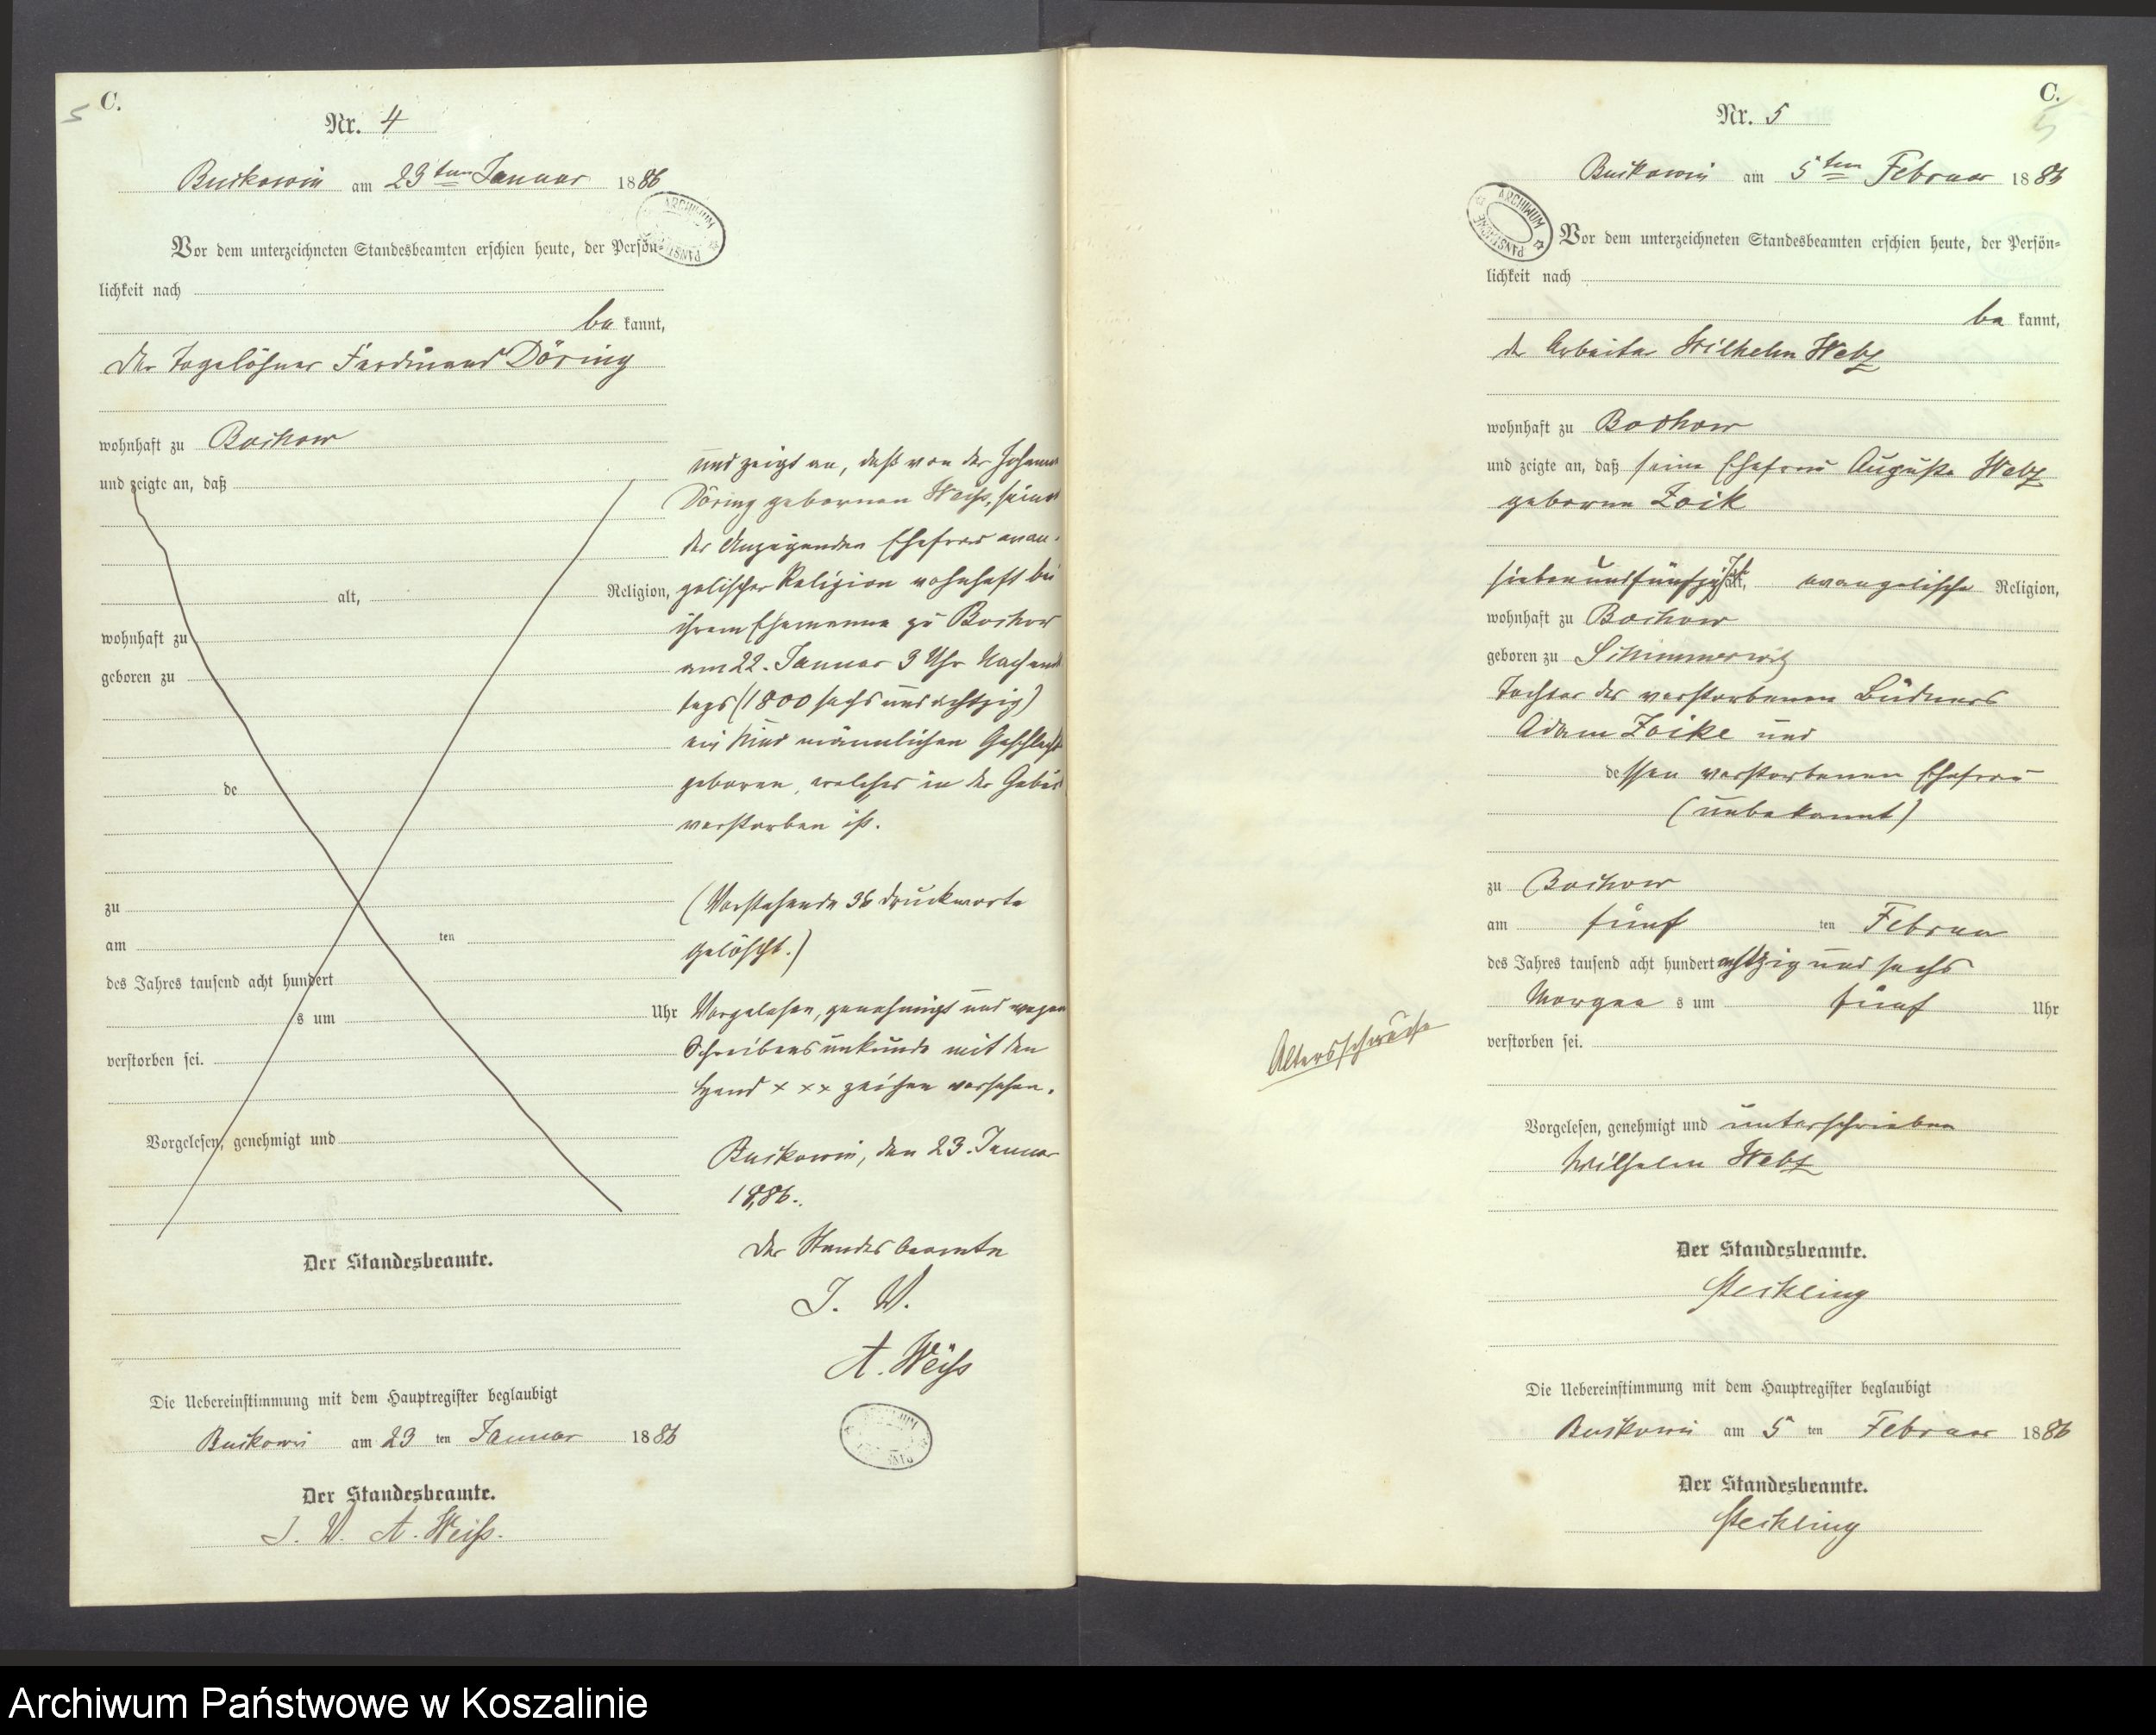 C.
5
Nr. 4
Buckowin am 23ten Januar 1886
Vor dem unterzeichneten Standesbeamten erschien heute, der Persön=
lichkeit nach
be kannt,
der Tagelöhner Ferdinand Döring
wohnhaft zu Bochow
und zeigte an, daß
alt, Religion,
wohnhaft zu
geboren zu
de
zu
am ten
des Jahres tausend acht hundert
s um Uhr
verstorben sei.
Vorgelesen, genehmigt und
Der Standesbeamte.
Die Uebereinstimmung mit dem Hauptregister beglaubigt
Buckowin am 23 ten Januar 1886
Der Standesbeamte.
I. V. A. Weiß.
und zeigt an, daß von der Johanna
Döring gebornen Weiß, seiner
des Anzeigenden Ehefrau evan-
gelischer Religion wohnhaft bei
ihrem Ehemanne zu Bochow
am 22. Januar 9 Uhr Nachmit
tags (1800 sechs und achtzig)
ein Kind männlichen Geschlechts
geboren, welches in der Geburt
verstorben ist.
(Vorstehende 36 Druckworte
gelöscht.)
Vorgelesen, genehmigt und wegen
Schreibensunkunde mit den
Hand x x x zeichen versehen.
Buckowin, den 23. Januar
1886.
Der Standesbeamte
I. V.
A. Weiß
C.
5
Nr. 5
Buckowin am 5ten Februar 1886
ARCHIWUM PAŃSTWOWE
Vor dem unterzeichneten Standesbeamten erschien heute, der Persön=
lichkeit nach
be kannt,
der Arbeiter Wilhelm Wetz
wohnhaft zu Bochow
und zeigte an, daß seine Ehefrau Auguste Wetz
geborne Zoik
siebenundfünfzig Jahr alt, evangelische Religion,
wohnhaft zu Bochow
geboren zu Schimmerwitz
Tochter des verstorbenen Büdners
Adam Zoike und
dessen verstorbenen Ehefrau
(unbekannt)
zu Bochow
am fünf ten Februar
des Jahres tausend acht hundert achtzig und sechs
Morgen s um fünf Uhr
verstorben sei.
Altersschwäche
Vorgelesen, genehmigt und unterschrieben
Wilhelm Wetz
Der Standesbeamte.
Steckling
Die Uebereinstimmung mit dem Hauptregister beglaubigt
Buckowin am 5 ten Februar 1886
Der Standesbeamte.
Steckling
Archiwum Państwowe w Koszalinie